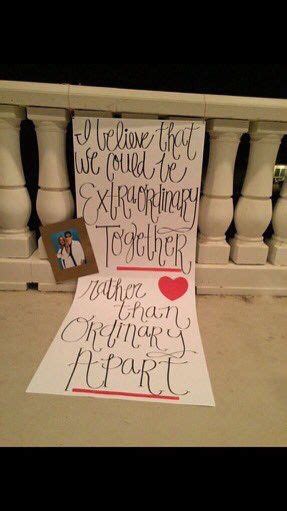 I believe that
we could be
Extraordinary
Together
rather
than
Ordinary
Apart